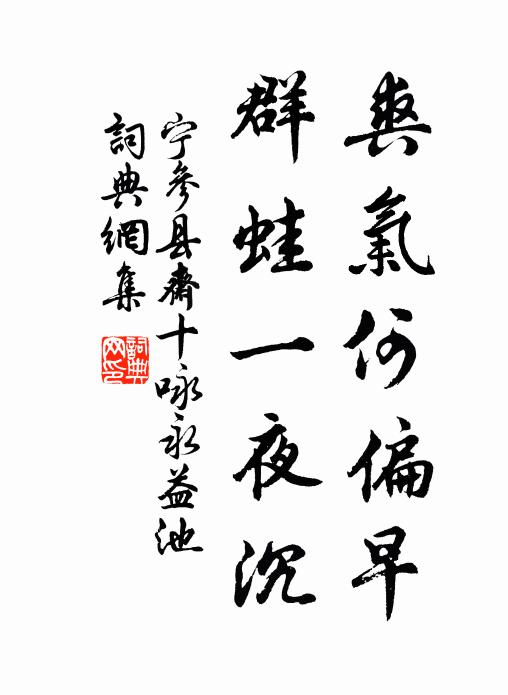 爽氣何偏早
群蛙一夜沉
宁參县齋十咏永益池
詞典網集
詞典網印